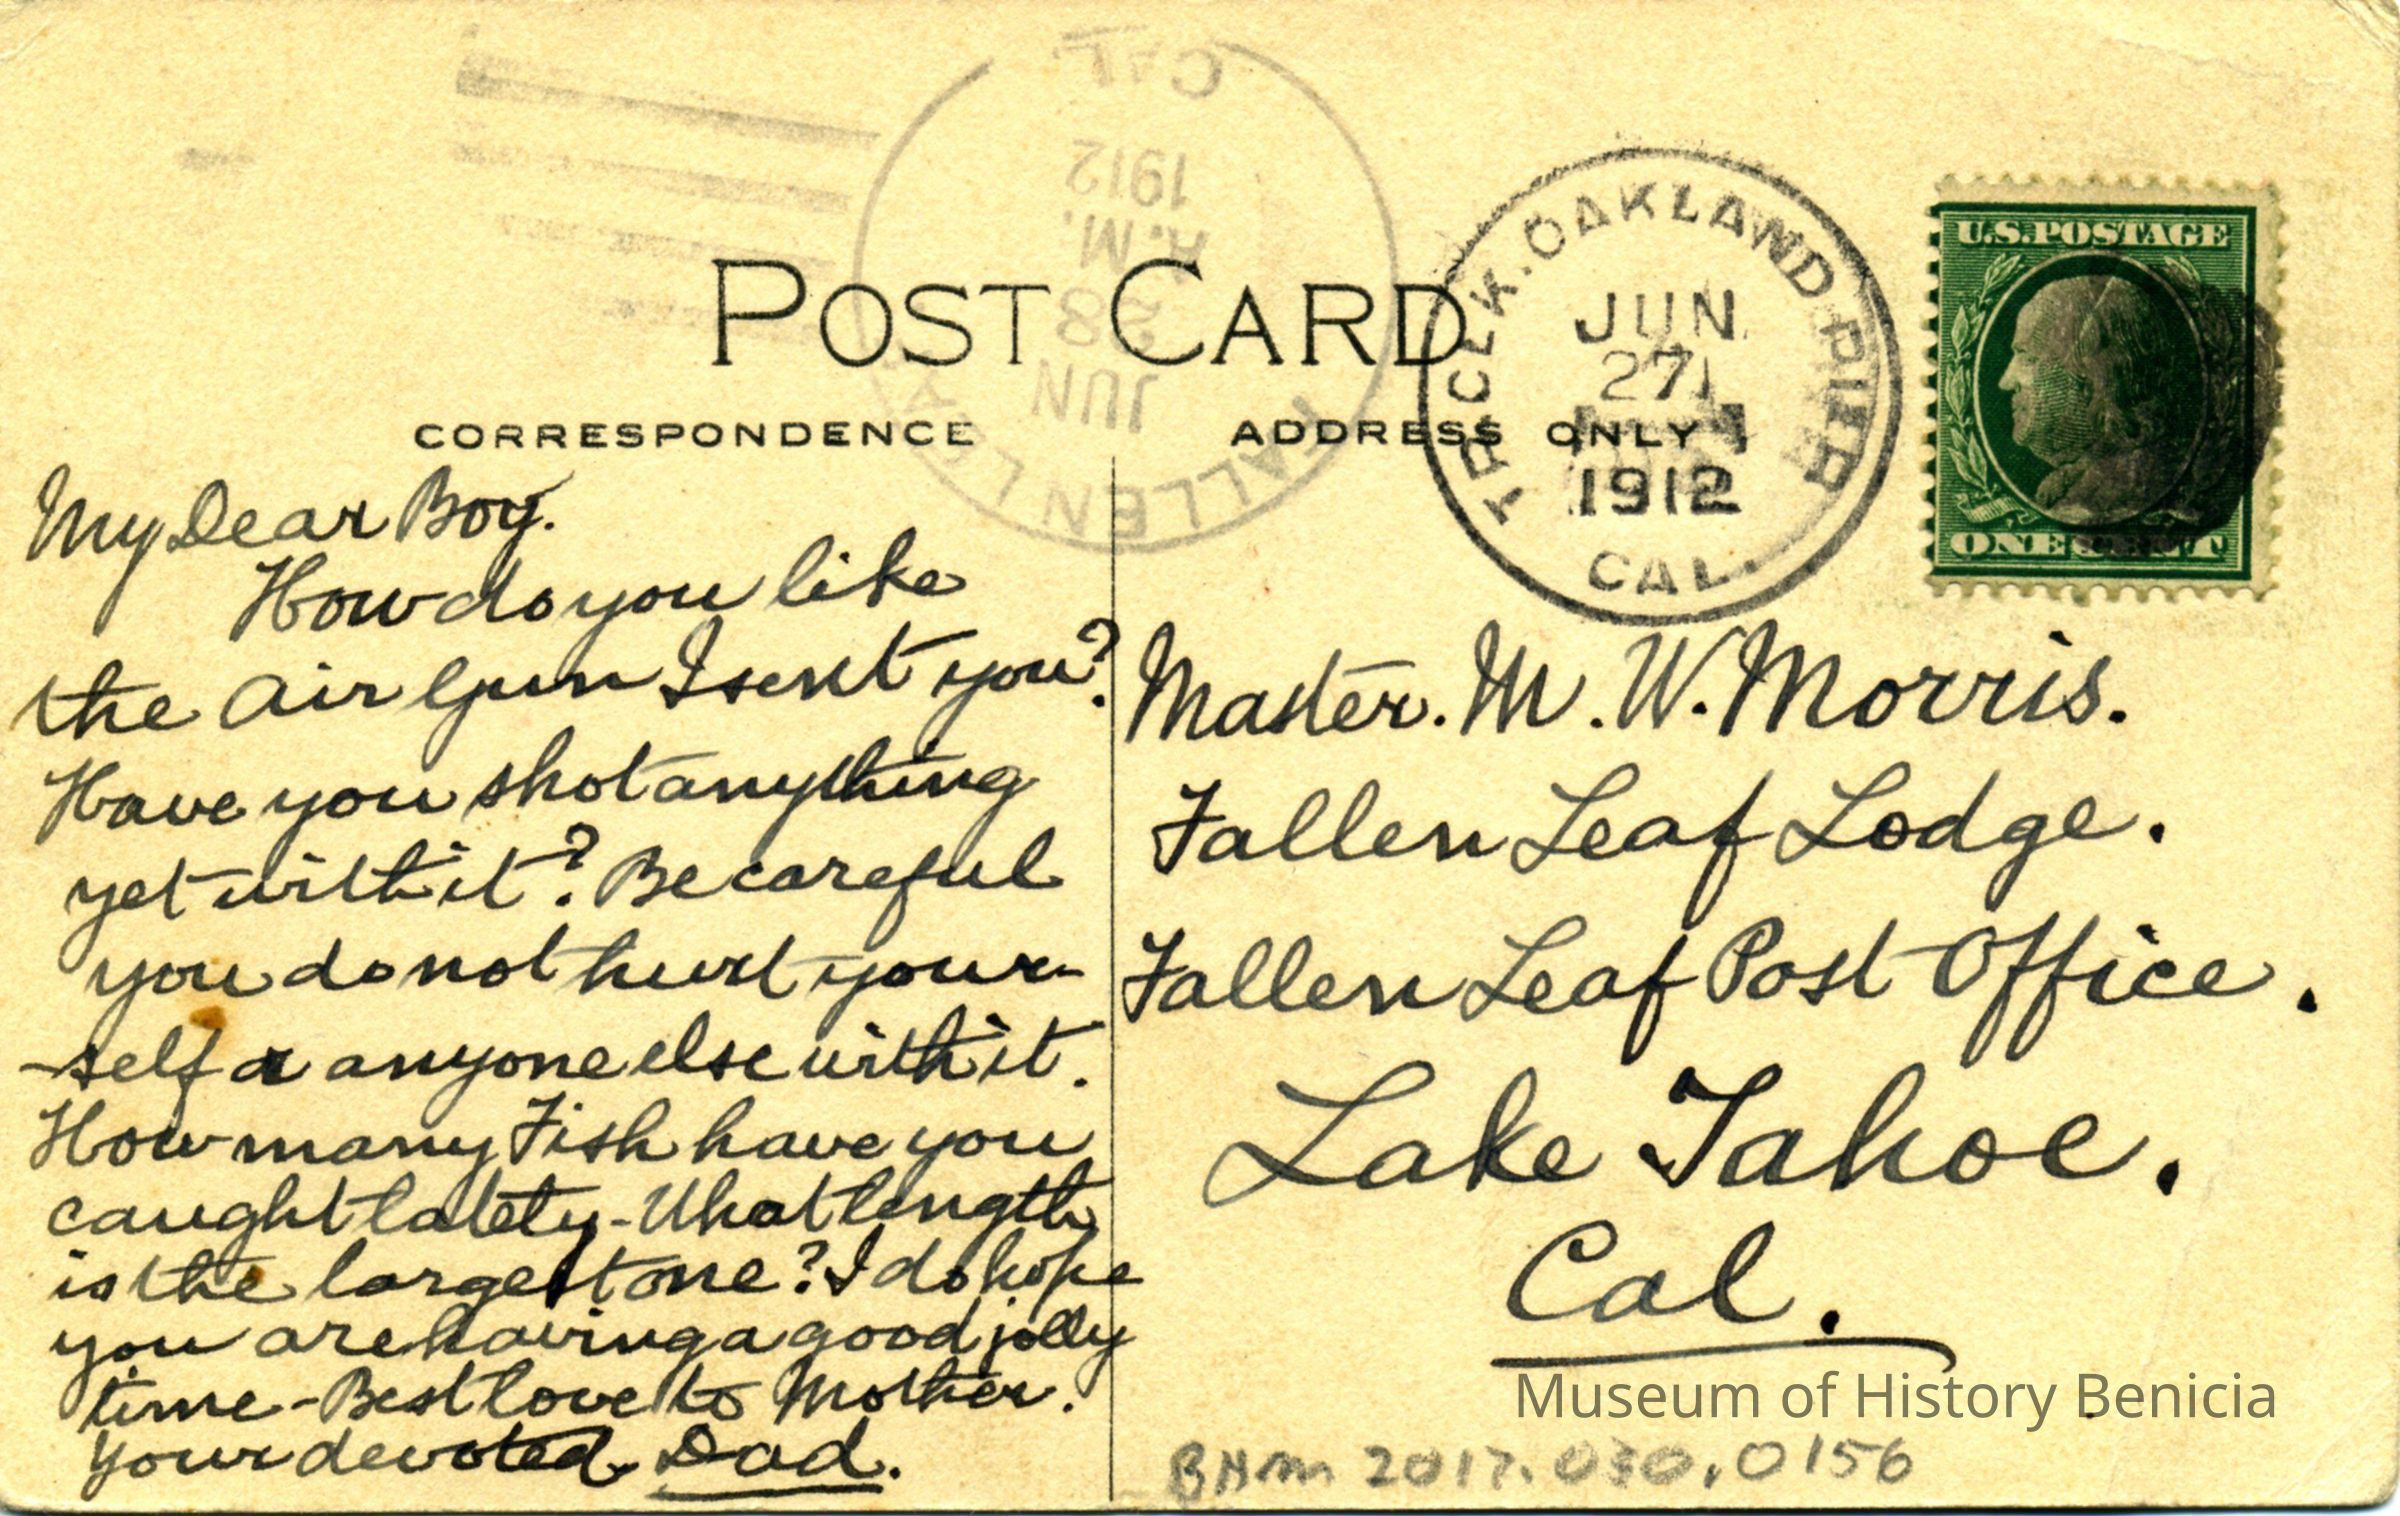 CAL.
1912
A.M.
28
JUN
FALLEN L
POST CARD
CORRESPONDENCE
ADDRESS ONLY
TR. CLK. OAKLAND PIER
JUN
27
1912
CAL.
U.S. POSTAGE
ONE CENT
My Dear Boy.
How do you like
the air Gun I sent you?
Have you shot anything
yet with it? Be careful
you do not hurt your-
-self or anyone else with it.
How many Fish have you
caught lately - What length
is the largest one? I do hope
you are having a good jolly
time - Best love to Mother.
Your devoted Dad.
Master. M. W. Morris.
Fallen Leaf Lodge.
Fallen Leaf Post Office.
Lake Tahoe.
Cal.
Museum of History Benicia
BHM 2017.030.0156